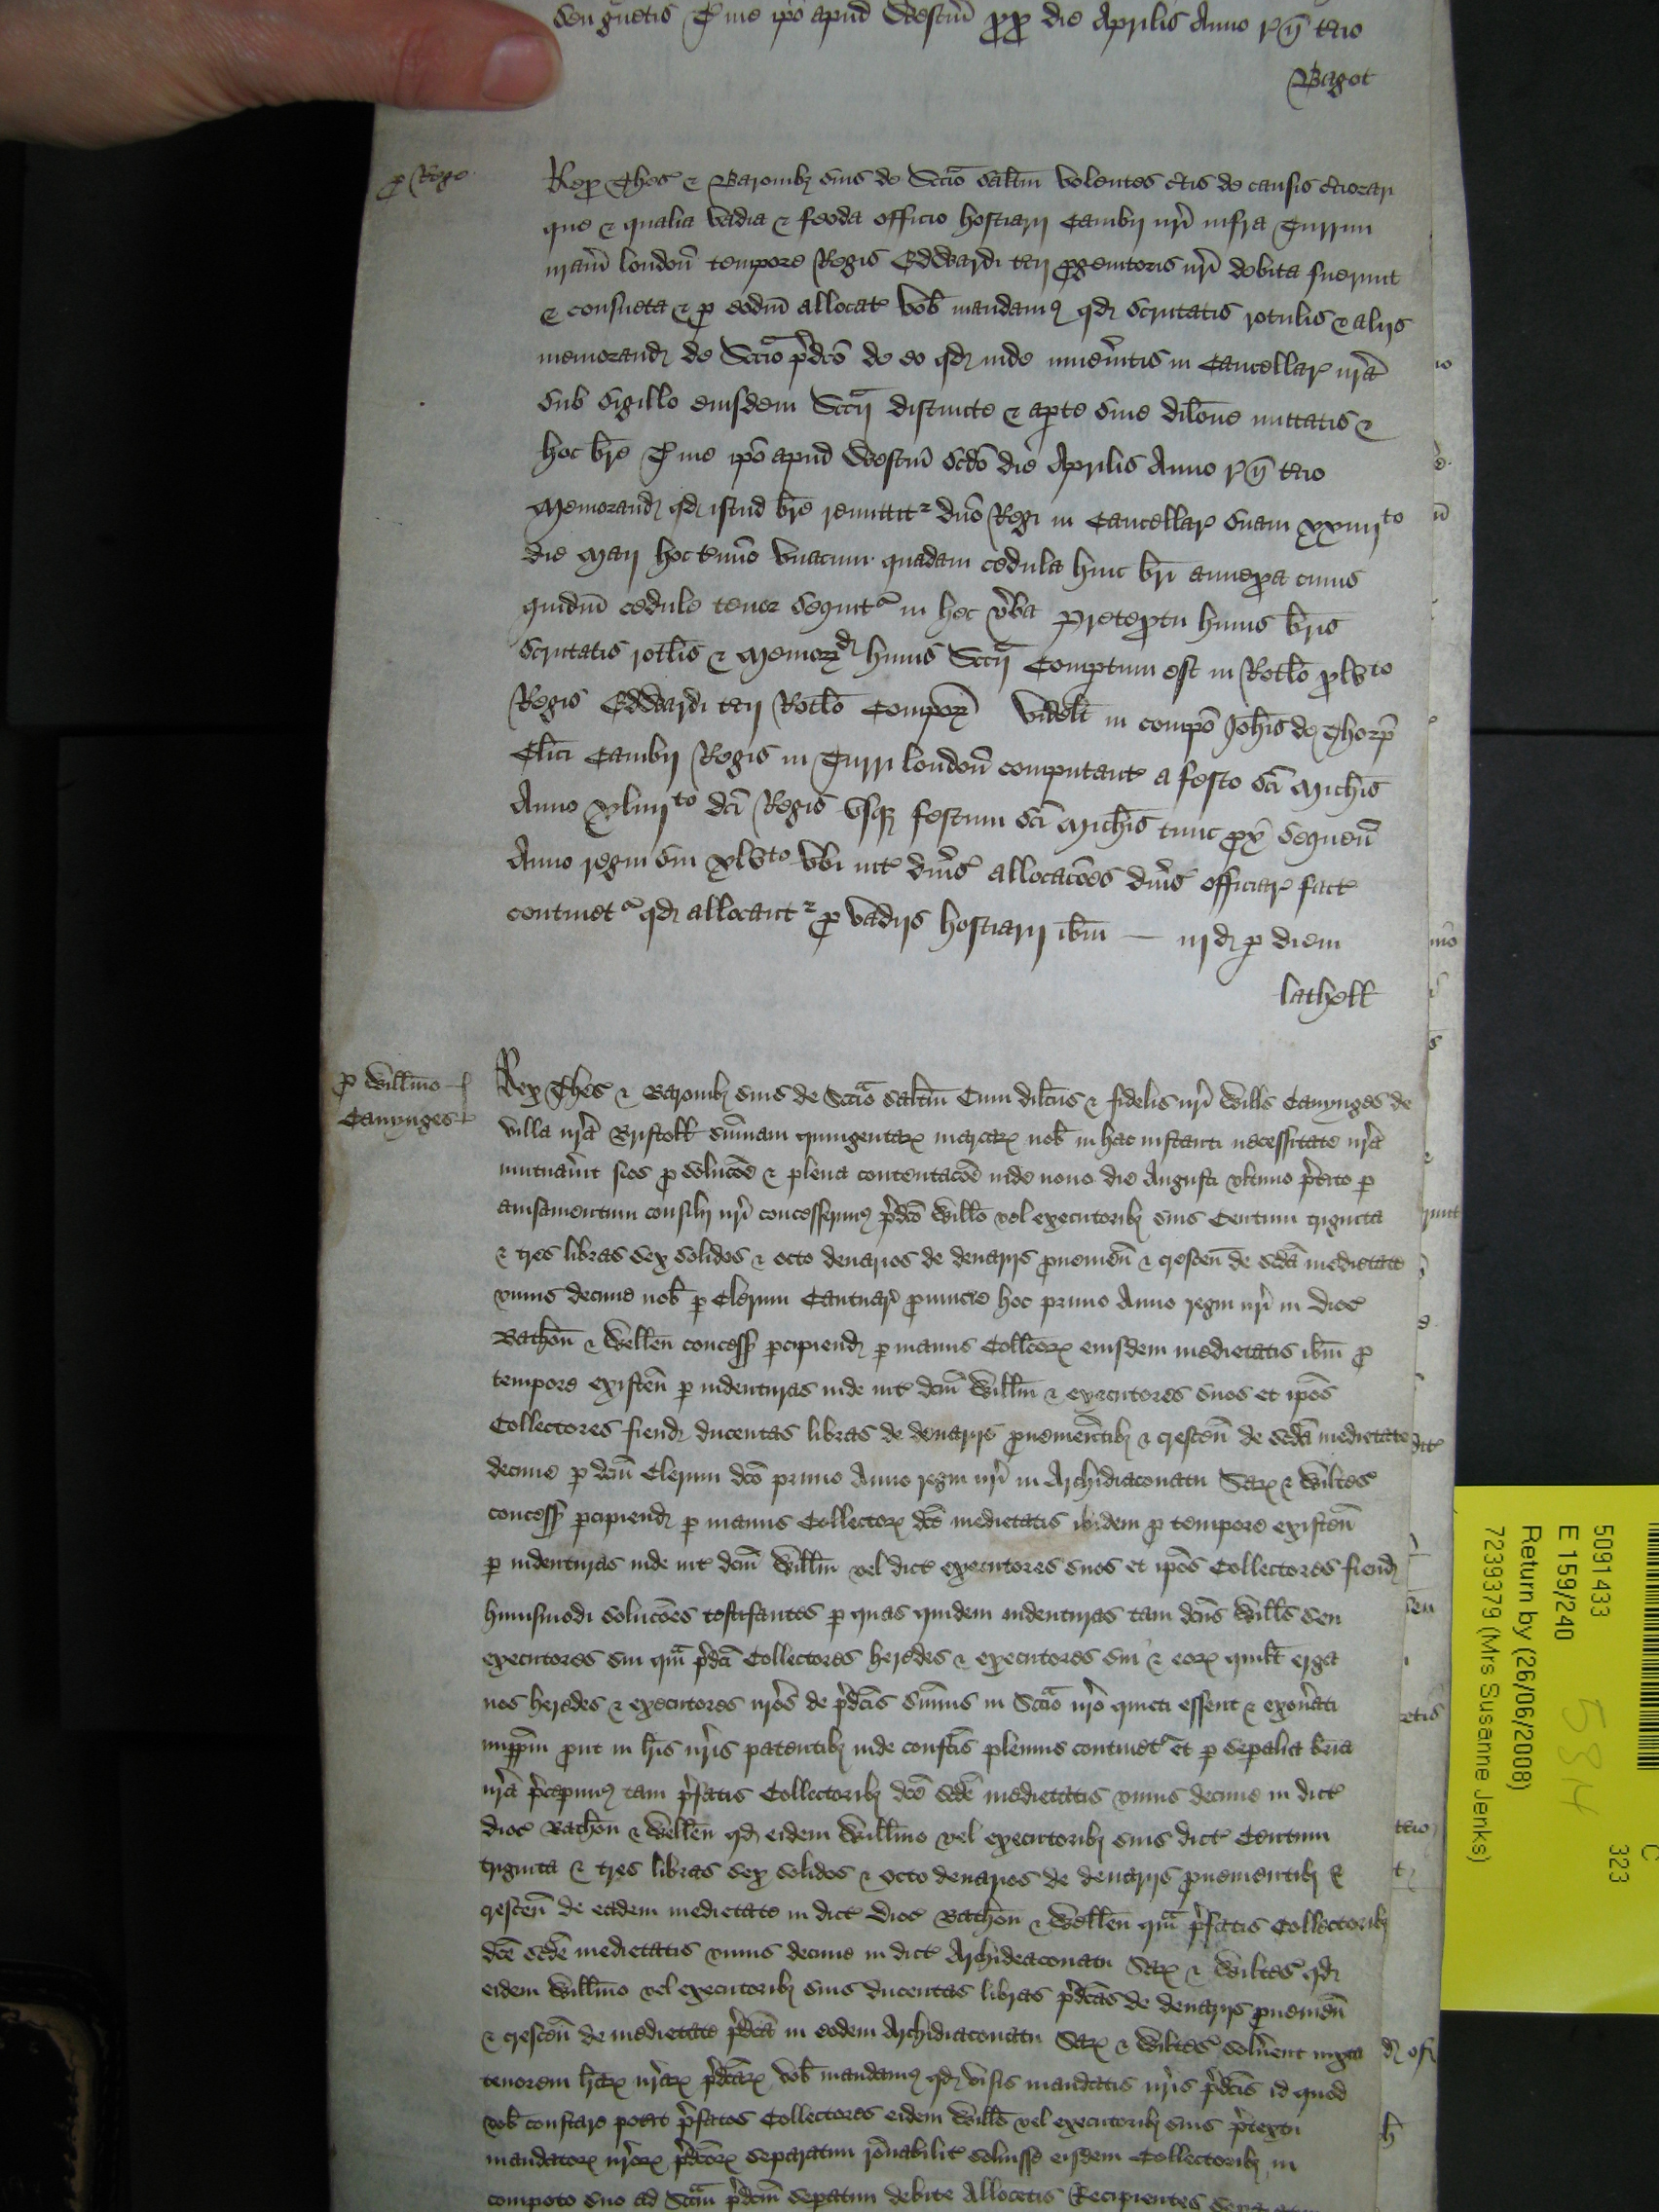 Seu gnetis T me ipo apud Westm̄ xx die Aprilis Anno r n̄ t̄cio
Bagot
p Rege
Rex Thes' & Baronibȝ suis de Sccīo salt̄m volentes c̄tis de causis c̄ciorari
que & qualia vadia & feoda officio hostiarij Cambij nr̄i infra Turrim
nr̄am london̄ tempore Regis Edwardi t̄cij progenitoris nr̄i debita fuerunt
& consueta & p eodm̄ allocat' vob̄ mandamꝰ qd scrutatis rotulis & alijs
memorand' de Sccīo p̄dc̄o de eo qd inde inuen̄itis in Cancellar' nr̄a
sub sigillo eiusdem Sccīj distincte & ap̄te sine dil̄one mittatis &
hoc br̄e T me ip̄o apud Westm̄ scd̄o die Aprilis Anno r n̄ t̄cio
Memorand' qd istud br̄e remittit' dn̄o Regi in Cancellar' suam xxiiij to
die Maij hoc t̄mino vnacum quadam cedula huic br̄i annexa cuius
quidm̄ cedule tenor sequit' in hec v̄ba Pretextu huius br̄is
Scrutatis rotl̄is & Memorand' huius Sccīj Compertum est in Rotl̄o xlv to
Regis Edwardi t̄cij Rotl̄o Compoꝝ videlt̄ in compō Joh̄is de Thorp̄
Cl̄ici Cambij Regis in Turri london̄ computant' a festo Sc̄i Mich̄is
Anno xliiij to dc̄i Regis vsqȝ festum Sc̄i Mich̄is tunc prox̄ sequen̄
Anno regni sui xlv to vbi int' diūs' allocac̄oes diūs' officiar' fact'
continet' qd allocant' p vadijs hostiarij ib̄m — iij d' p diem
lathell
p Willm̄o
Canynges
Rex Thes' & Baronibȝ suis de Sccīo salt̄m Cum dilc̄us & fidelis nr̄i Will̄s Canynges de
villa nr̄a Bristoll sum̄am quingentaꝝ marcaꝝ nob̄ in hac instanti necessitate nr̄a
mutuau̅it nos p soluc̄oe & plena contentac̄oe inde nono die Augusti vltimo p̄t̄ito p
auisamentum consilij nr̄i concesserimꝰ p̄dc̄o Will̄o vel executoribȝ suis Centum triginta
& tres libras sex solidos & octo denarios de denarijs prouenien̄ & crescen̄ de scd̄a medietate
vnius decime nob̄ p Clerum Cantuar̄ prouincie hoc primo Anno regni nr̄i in dioc̄
Bathon̄ & Wellen̄ concess' p̱cipiend' p manus Collc̄oꝝ eiusdem medietatis ib̄m p
tempore existen̄ p indenturas inde int' dc̄m Willm̄ & executores suos et ip̄os
Collectores fiend' ducentas libras de denarijs prouenien̄tibȝ & crescen̄ de scd̄a medietate
decime p dc̄m Clerum dc̄o primo Anno regni nr̄i in Archidiaconatu Saꝝ & Wiltes'
concess' p̱cipiend' p manus Collectoꝝ dc̄e medietatis ibidem p tempore existen̄
p indenturas inde int' dc̄m Willm̄ vel dict' executores suos et ip̄os Collectores fiend'
huiusmodi soluc̄oes testificantes p quas quidem indenturas tam dc̄us Will̄s seu
executores sui qm̄ p̄dc̄i Collectores heredes & executores sui & eoꝝ quilt̄ erga
nos heredes & executores nr̄os de p̄dc̄is sum̄is in Sccīo nr̄o quieti essent & exon̄ati
imppm̄ prout in lr̄is nr̄is patentibȝ inde confc̄is plenius continet' et p sep̱alia br̄ia
nr̄a p̄cepimꝰ tam p̄fatis Collectoribȝ dc̄e scd̄e medietatis vnius decime in dict'
dioc' Bathon̄ & Wellen̄ qd eidem Willm̄o vel executoribȝ suis dict' Centum
triginta & tres libras sex solidos & octo denarios de denarijs prouenientibȝ &
crescen̄ de eadem medietate in dict' dioc' Bathon̄ & Wellen̄ qm̄ p̄fatis Collectoribȝ
dc̄e scd̄e medietatis vnius decime in dict' Archideaconatu Saꝝ & Wiltes' qd
eidem Willm̄o vel executoribȝ suis ducentas libras p̄dc̄as de denarijs prouenien̄
& crescen̄ de medietate p̄dc̄a in eodem Archidiaconatu Saꝝ & Wiltes' solu̅ent iuxta
tenorem lr̄aꝝ nr̄aꝝ p̄dc̄aꝝ vob̄ mandamꝰ qd visis mandatis nr̄is p̄dc̄is id quod
vob̄ constare pot̄it p̄fatos Collectores eidem Will̄o vel executoribȝ suis p̄textu
mandatoꝝ nr̄oꝝ p̄dc̄oꝝ separatim rōnabilit' soluisse eisdem Collectoribȝ in
compoto suo ad Sccm̄ p̄dc̄m sep̱atim debite Allocetis Recipientes
5091433
E 159/240
Return by (26/06/2008)
7239379 (Mrs Susanne Jenks)
584
323
C